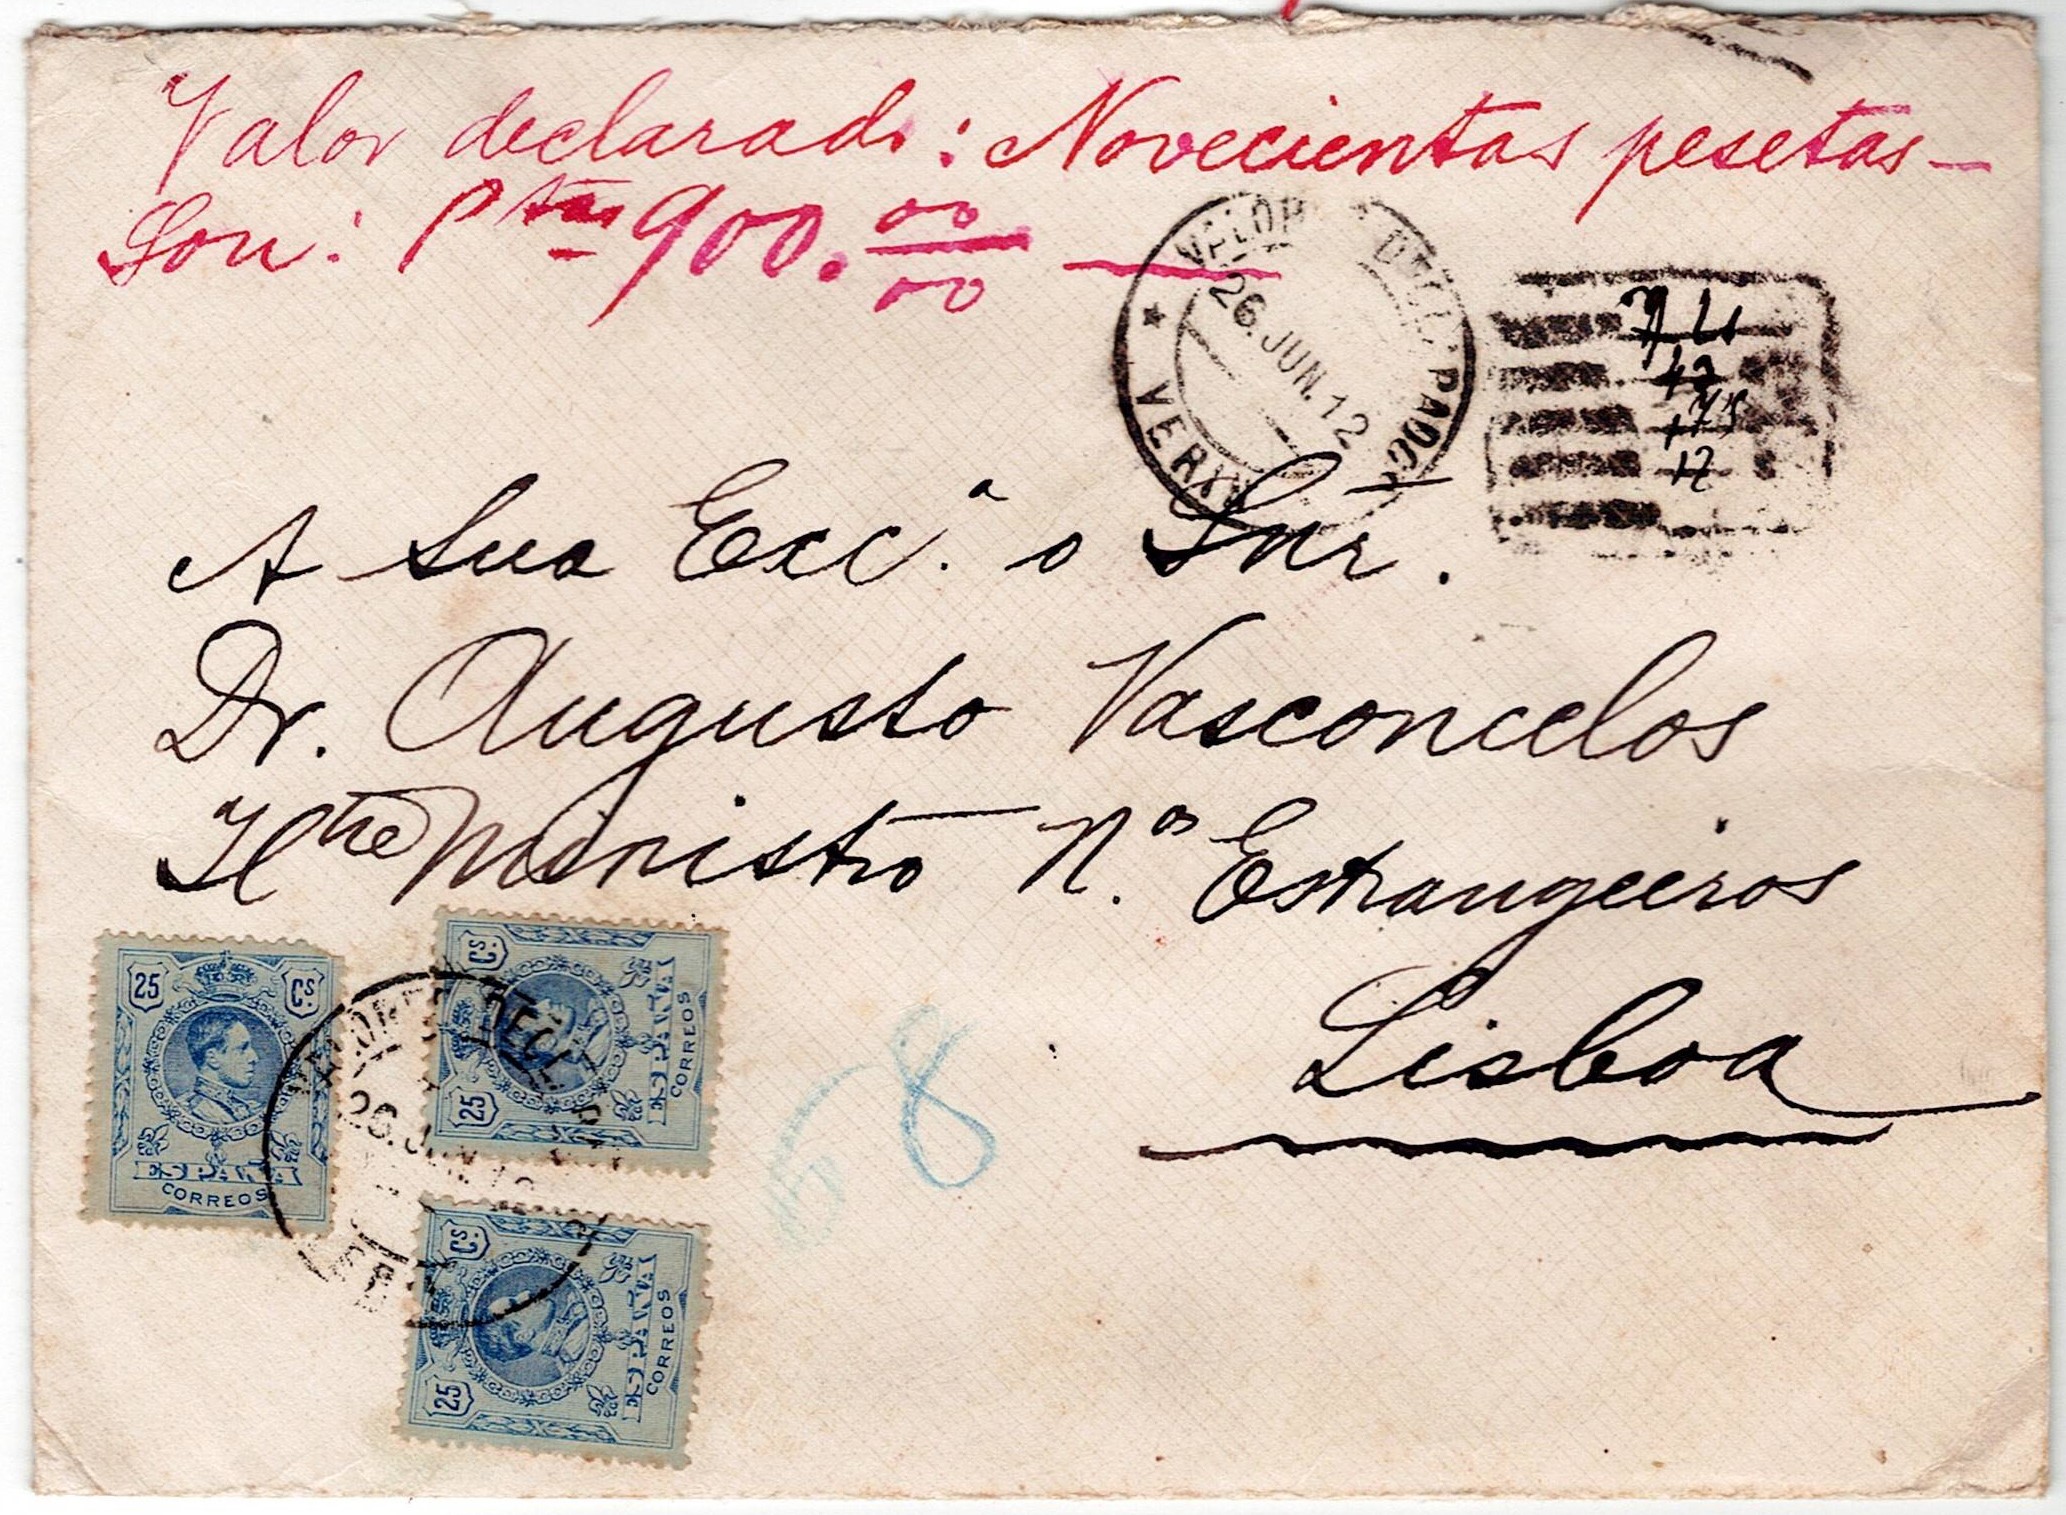 Valor declarado: Novecientas pesetas
Son: Ptas 900. 00/00
VALOR DECLARADO
26. JUN. 12
VERIN
A Sua Exc.ª o Snr.
Dr. Augusto Vasconcelos
Iltre Ministro N.os Estrangeiros
Lisboa
25 Cs.
ESPAÑA
CORREOS
25 Cs.
ESPAÑA
CORREOS
25 Cs.
ESPAÑA
CORREOS
26. JUN. 12
8